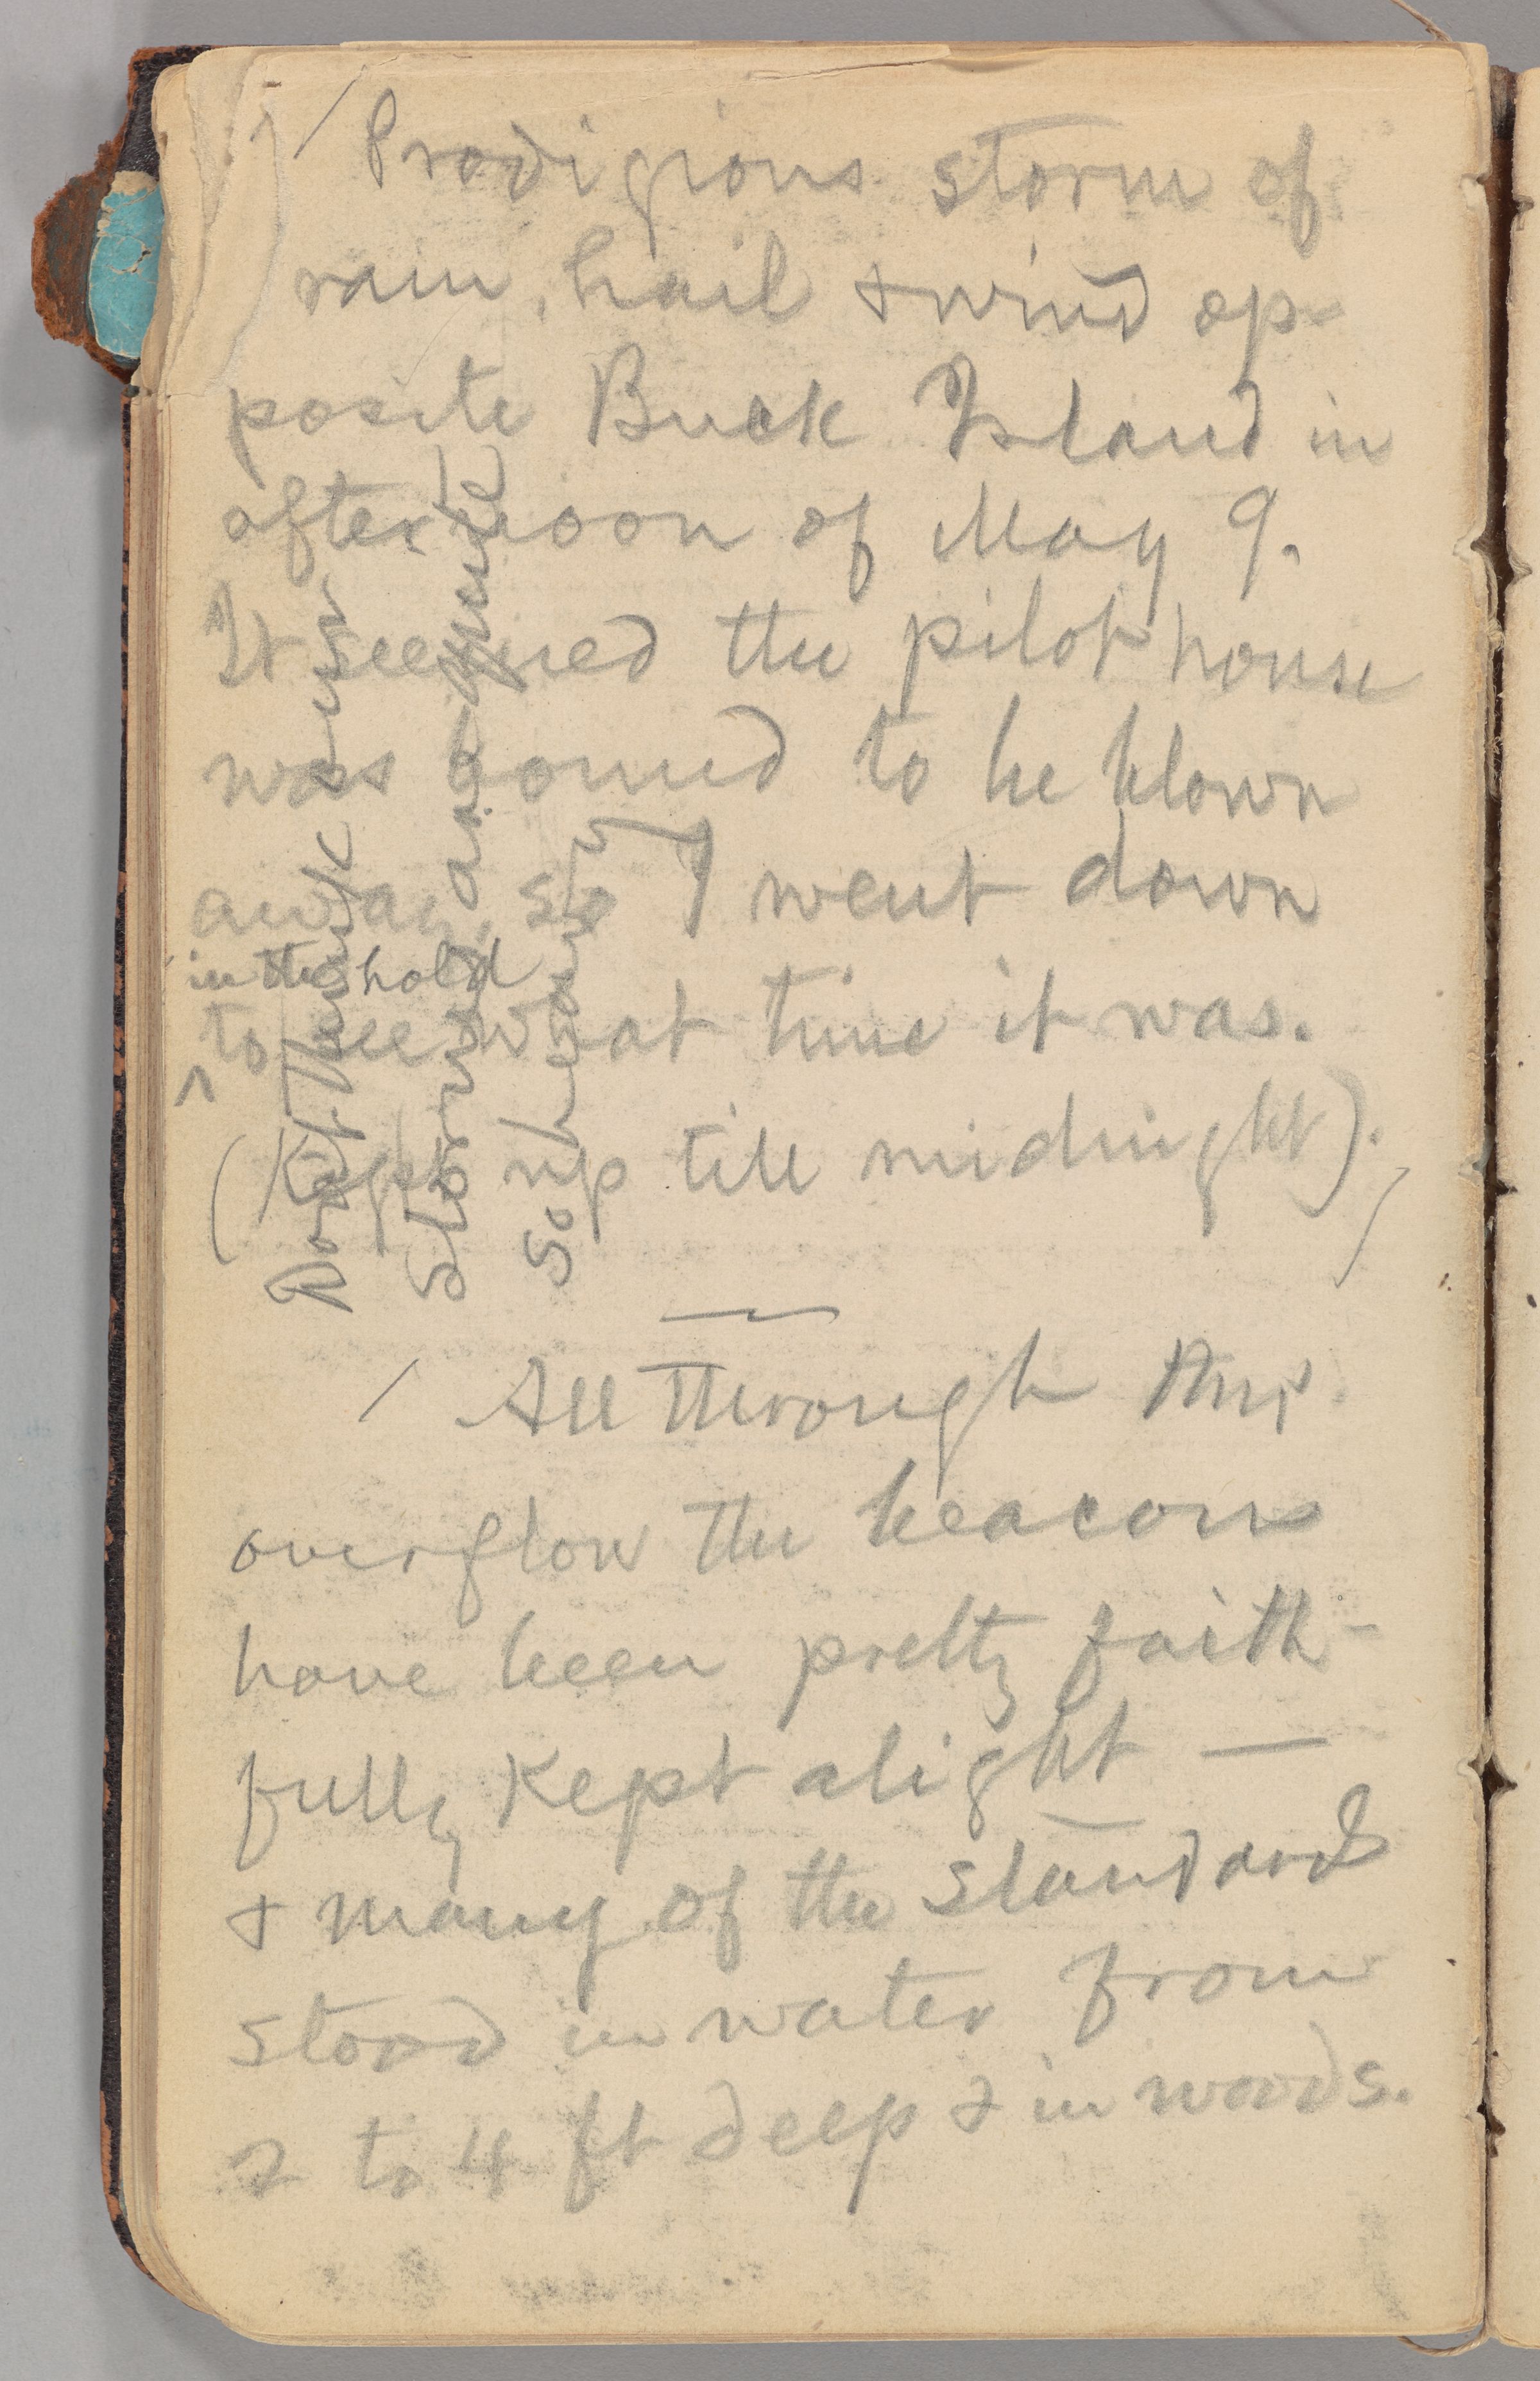 Prodigious storm of
rain, hail & wind op-
posite Buck Island in
afternoon of May 9.
It seemed the pilot house
was bound to be blown
away, so I went down
in the hold
to see what time it was.
(Kept up till midnight).
All through this
overflow the beacons
have been pretty faith-
fully kept alight —
& many of the standards
stood in water from
2 to 4 ft deep & in woods.